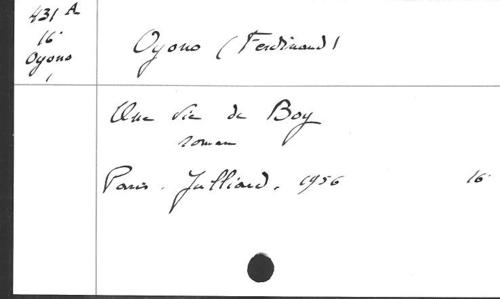 431 A
16°
Oyono
Oyono (Ferdinand)
Une vie de Boy
roman
Paris. Julliard. 1956 16°